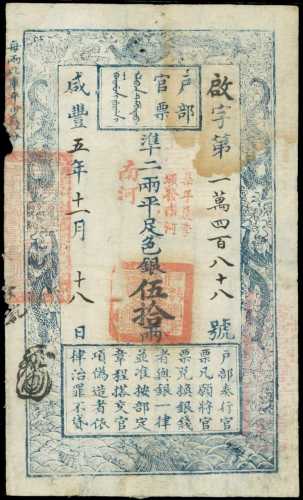 户部
官票
啟字第一萬四百八十八號
準二兩平足色銀伍拾兩
咸豐五年十一月十八日
南河
户部奏行官
票凡願將官
票兌換銀錢
者與銀一律
並准按部定
章程搭交官
項偽造者依
律治罪不貸